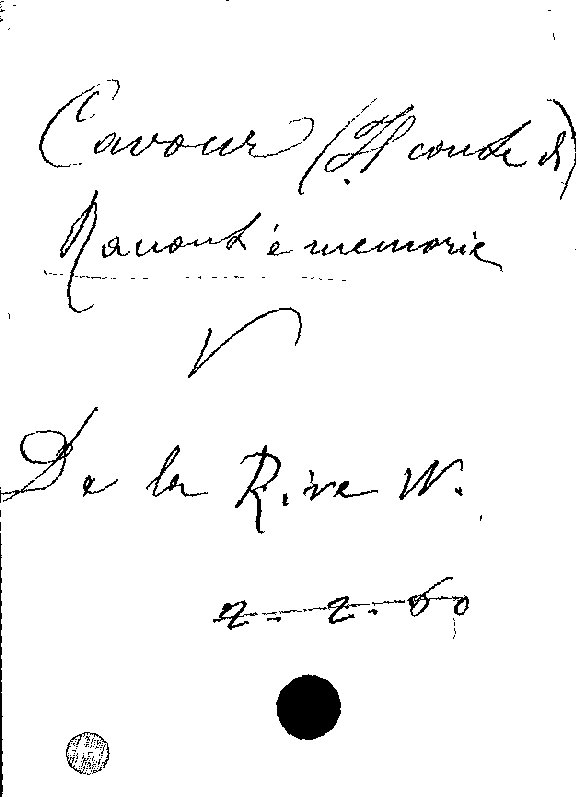 Cavour (Il conte di)
Racconti e memorie
V
De la Rive W.
2. 2. 60